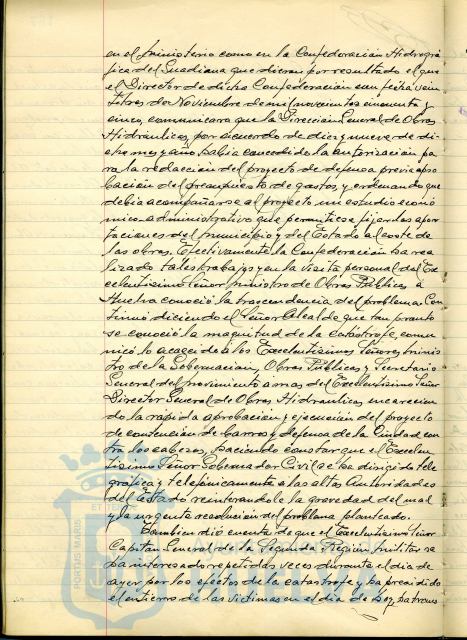 en el Ministerio como en la Confederación Hidrográ-
fica del Guadiana que dieron por resultado el que
el Director de dicha Confederación con fecha vein-
titres de Noviembre de mil novecientos cincuenta y
cinco, comunicara que la Dirección General de Obras
Hidráulicas, por acuerdo de diez y nueve de di-
cho mes y año, había concedido la autorización pa-
ra la redacción del proyecto de defensa previa apro-
bación del presupuesto de gastos, y ordenando que
debía acompañarse al proyecto un estudio econó-
mico-administrativo que permitiese fijar las apor-
taciones del Municipio y del Estado al coste de
las obras. Efectivamente la Confederación ha rea-
lizado tales trabajos y en la visita personal del Ex-
celentísimo Señor Ministro de Obras Públicas a
Huelva conoció la trascendencia del problema. Con-
tinuó diciendo el Señor Alcalde que tan pronto
se conoció la magnitud de la catástrofe, comu-
nicó lo acaecido a los Excelentísimos Señores Minis-
tro de la Gobernación, Obras Públicas y Secretario
General del Movimiento amas del Excelentísimo Señor
Director General de Obras Hidráulicas, encarecien-
do la rápida aprobación y ejecución del proyecto
de contención de barros y defensa de la Ciudad con-
tra los cabezos. Haciendo constar que el Excelen-
tísimo Señor Gobernador Civil se ha dirigido tele-
gráfica y telefónicamente a las altas Autoridades
del Estado reiterandole la gravedad del mal
y la urgente resolución del problema planteado.
Tambien dió cuenta de que el Excelentísimo Señor
Capitan General de la Segunda Región Militar se
ha interesado repetidas veces durante el día de
ayer por los efectos de la catástrofe y ha presidido
el entierro de las víctimas en el día de hoy, patrono
PORTUS MARIS
ET TERRÆ